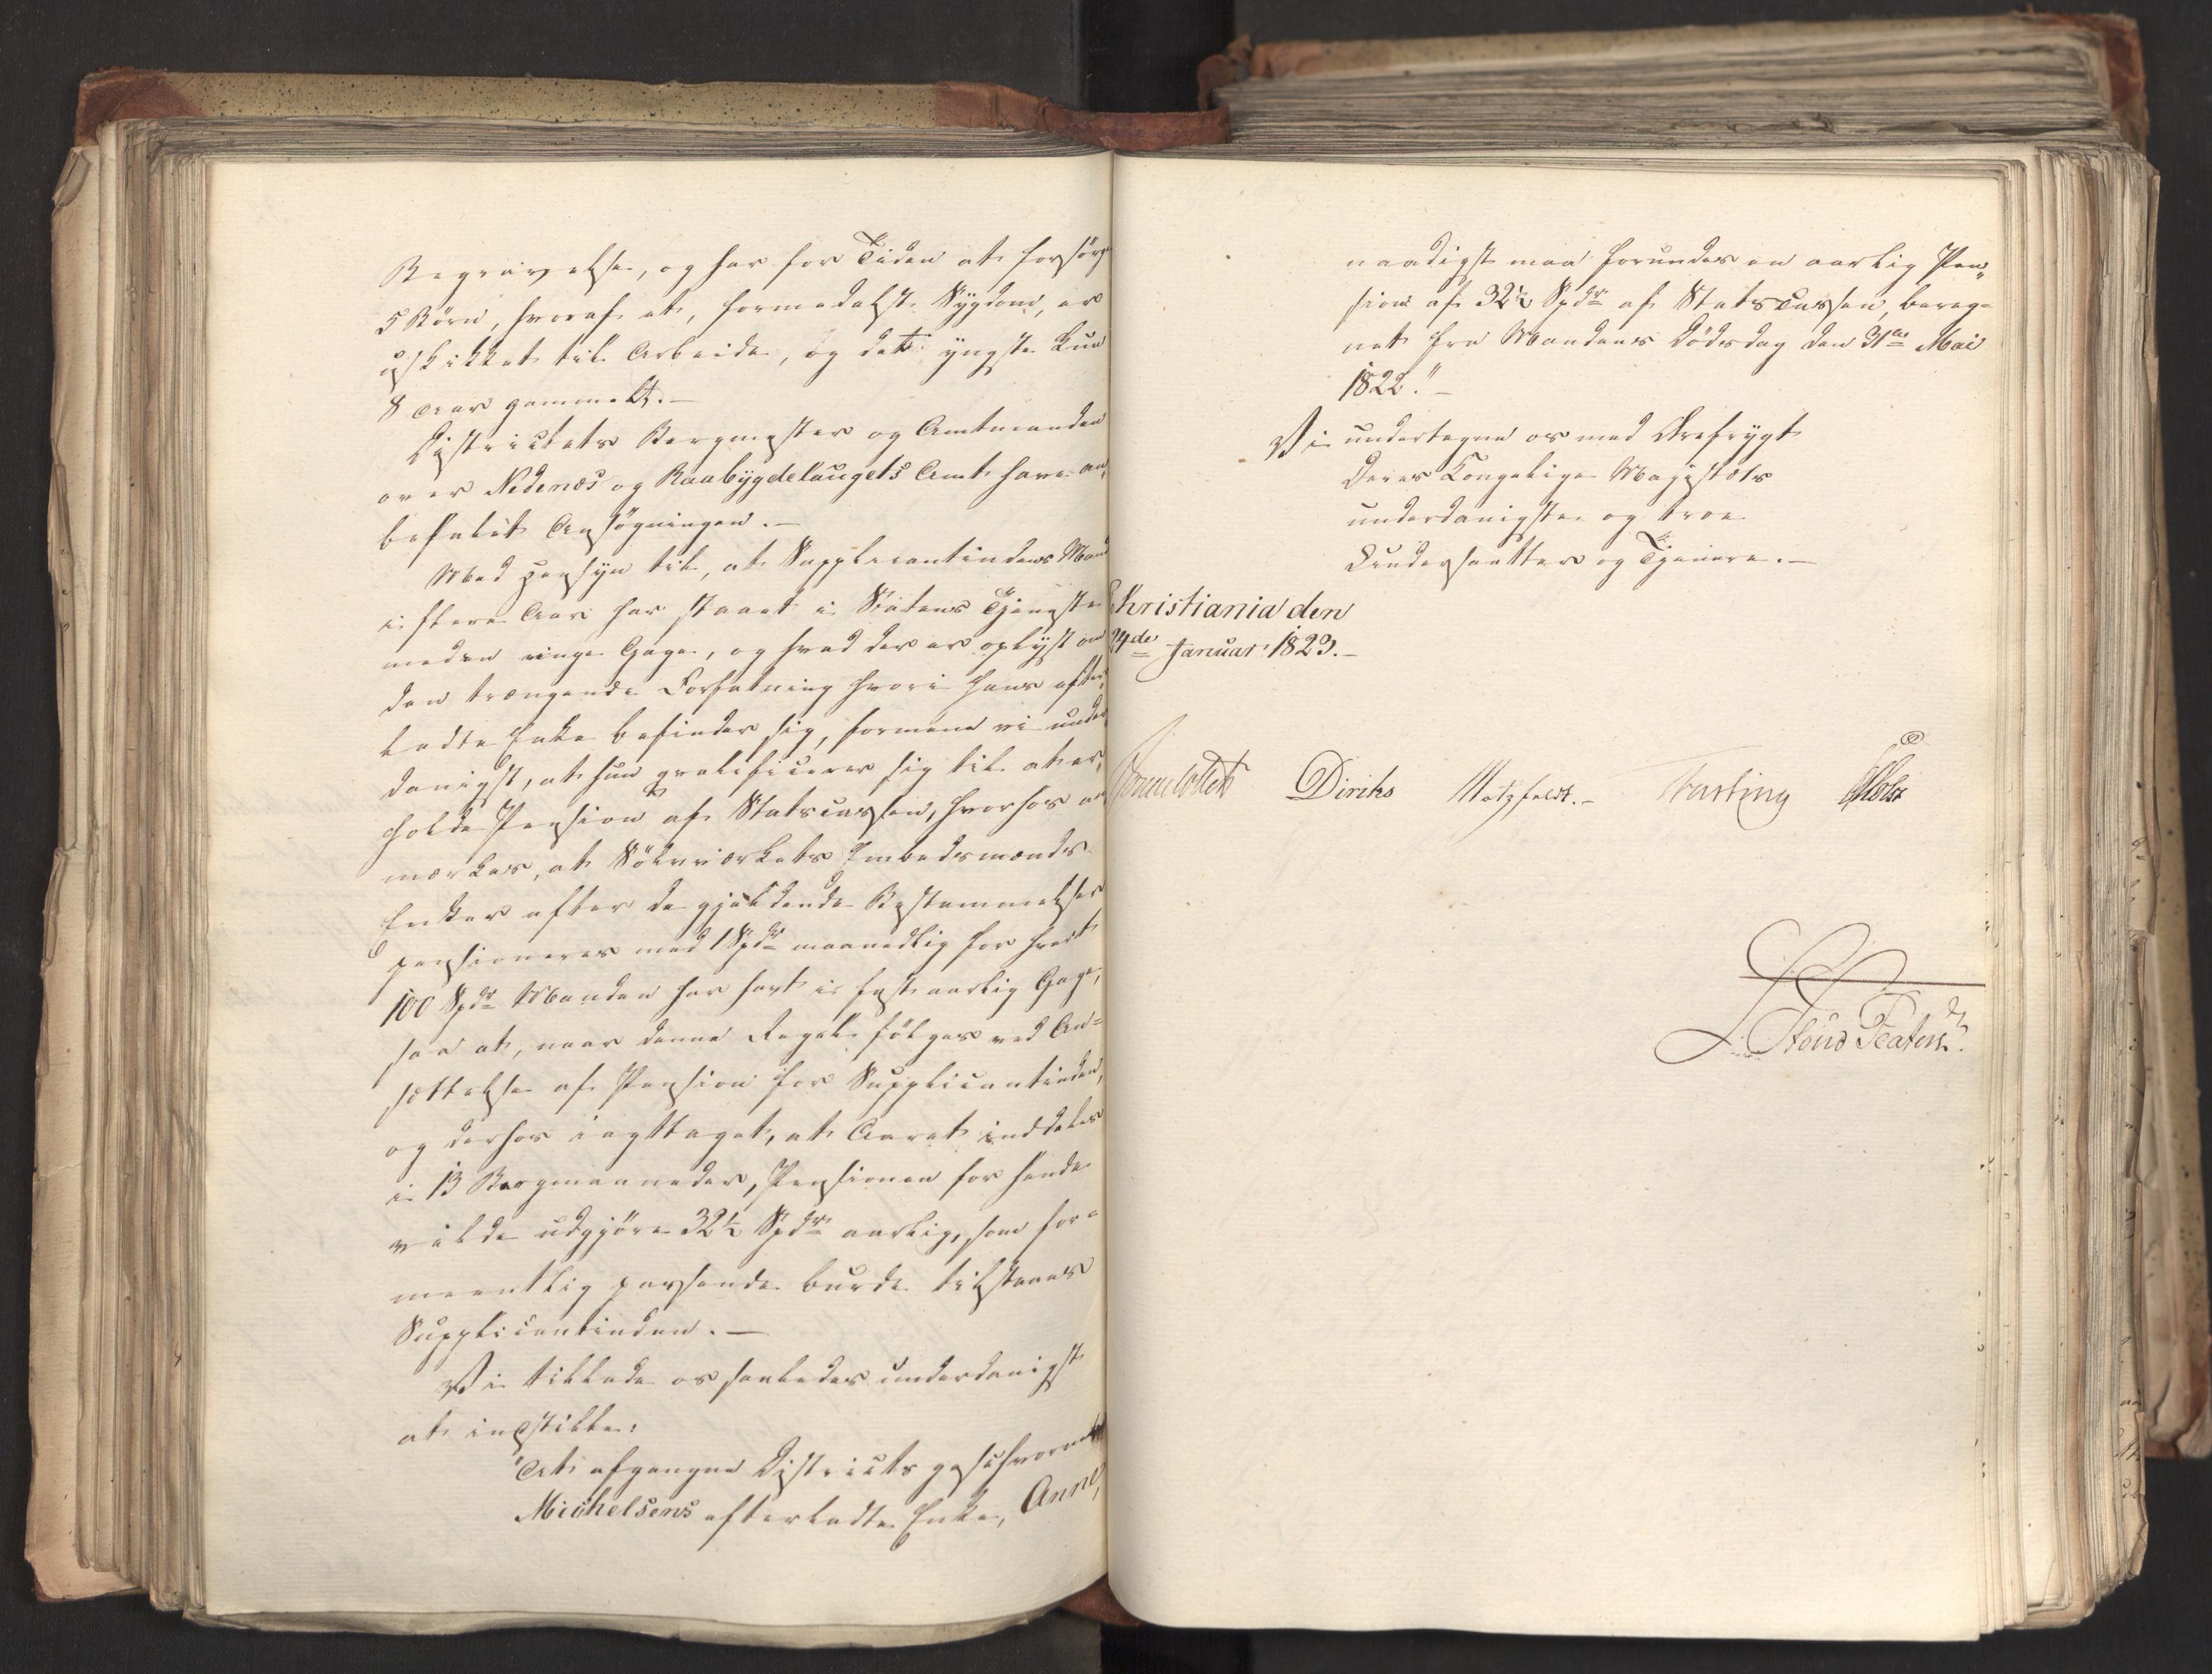 Begravelse, og har for Tiden at forsørge
5 Børn, hvoraf et, formedelst Sygdom, er
uskikket til Arbeide, og det yngste kun
8 Aar gammelt.—
Districtets Bergmester og Amtmanden
over Nedenæs og Raabygdelaugets Amt have an„
befalet Ansøgningen.—
Med Hensyn til, at Supplicantindens Mand
i flere Aar har staaet i Statens Tjeneste
med en ringe Gage, og hvad der er oplyst om
den trængende Forfatning hvori hans efter„
ladte Enke befinder sig, formene vi under
danigst, at hun qvalificerer sig til at er„
holde Pension af Statscassen, hvorhos an
mærkes, at Sølvværkets Embedsmænds
Enker efter de gjældende Bestemmelser
pensioneres med 1 Spdr maanedlig for hvert
100 Spdr Manden har havt i fast aarlig Gage,
saa at, naar denne Regel følges ved An=
sættelse af Pension for Supplicantinden,
og derhos iagttaget, at Aaret inddeles
i 13 Bergmaaneder, Pensionen for hende
vilde udgjøre 32½ Spdr aarlig, som for=
meentlig passende burde tilstaaes
Supplicantinden.—
Vi tillade os saaledes underdanigst
at indstille:
"At afgangne Districts geschworner
Michelsens efterladte Enke, Anne,
naadigst maa forundes en aarlig Pen„
sion af 32½ Spdr af Statscassen, bereg=
net fra Mandens Dødsdag den 31te Mai
1822."—
Vi undertegne os med Ærefrygt
Deres Kongelige Majestæts
underdanigste og troe
Undersaatter og Tjenere.—
Christiania den
24de Januar 1823.—
Jonas Collett Diriks Motzfeldt.- Fasting Holst